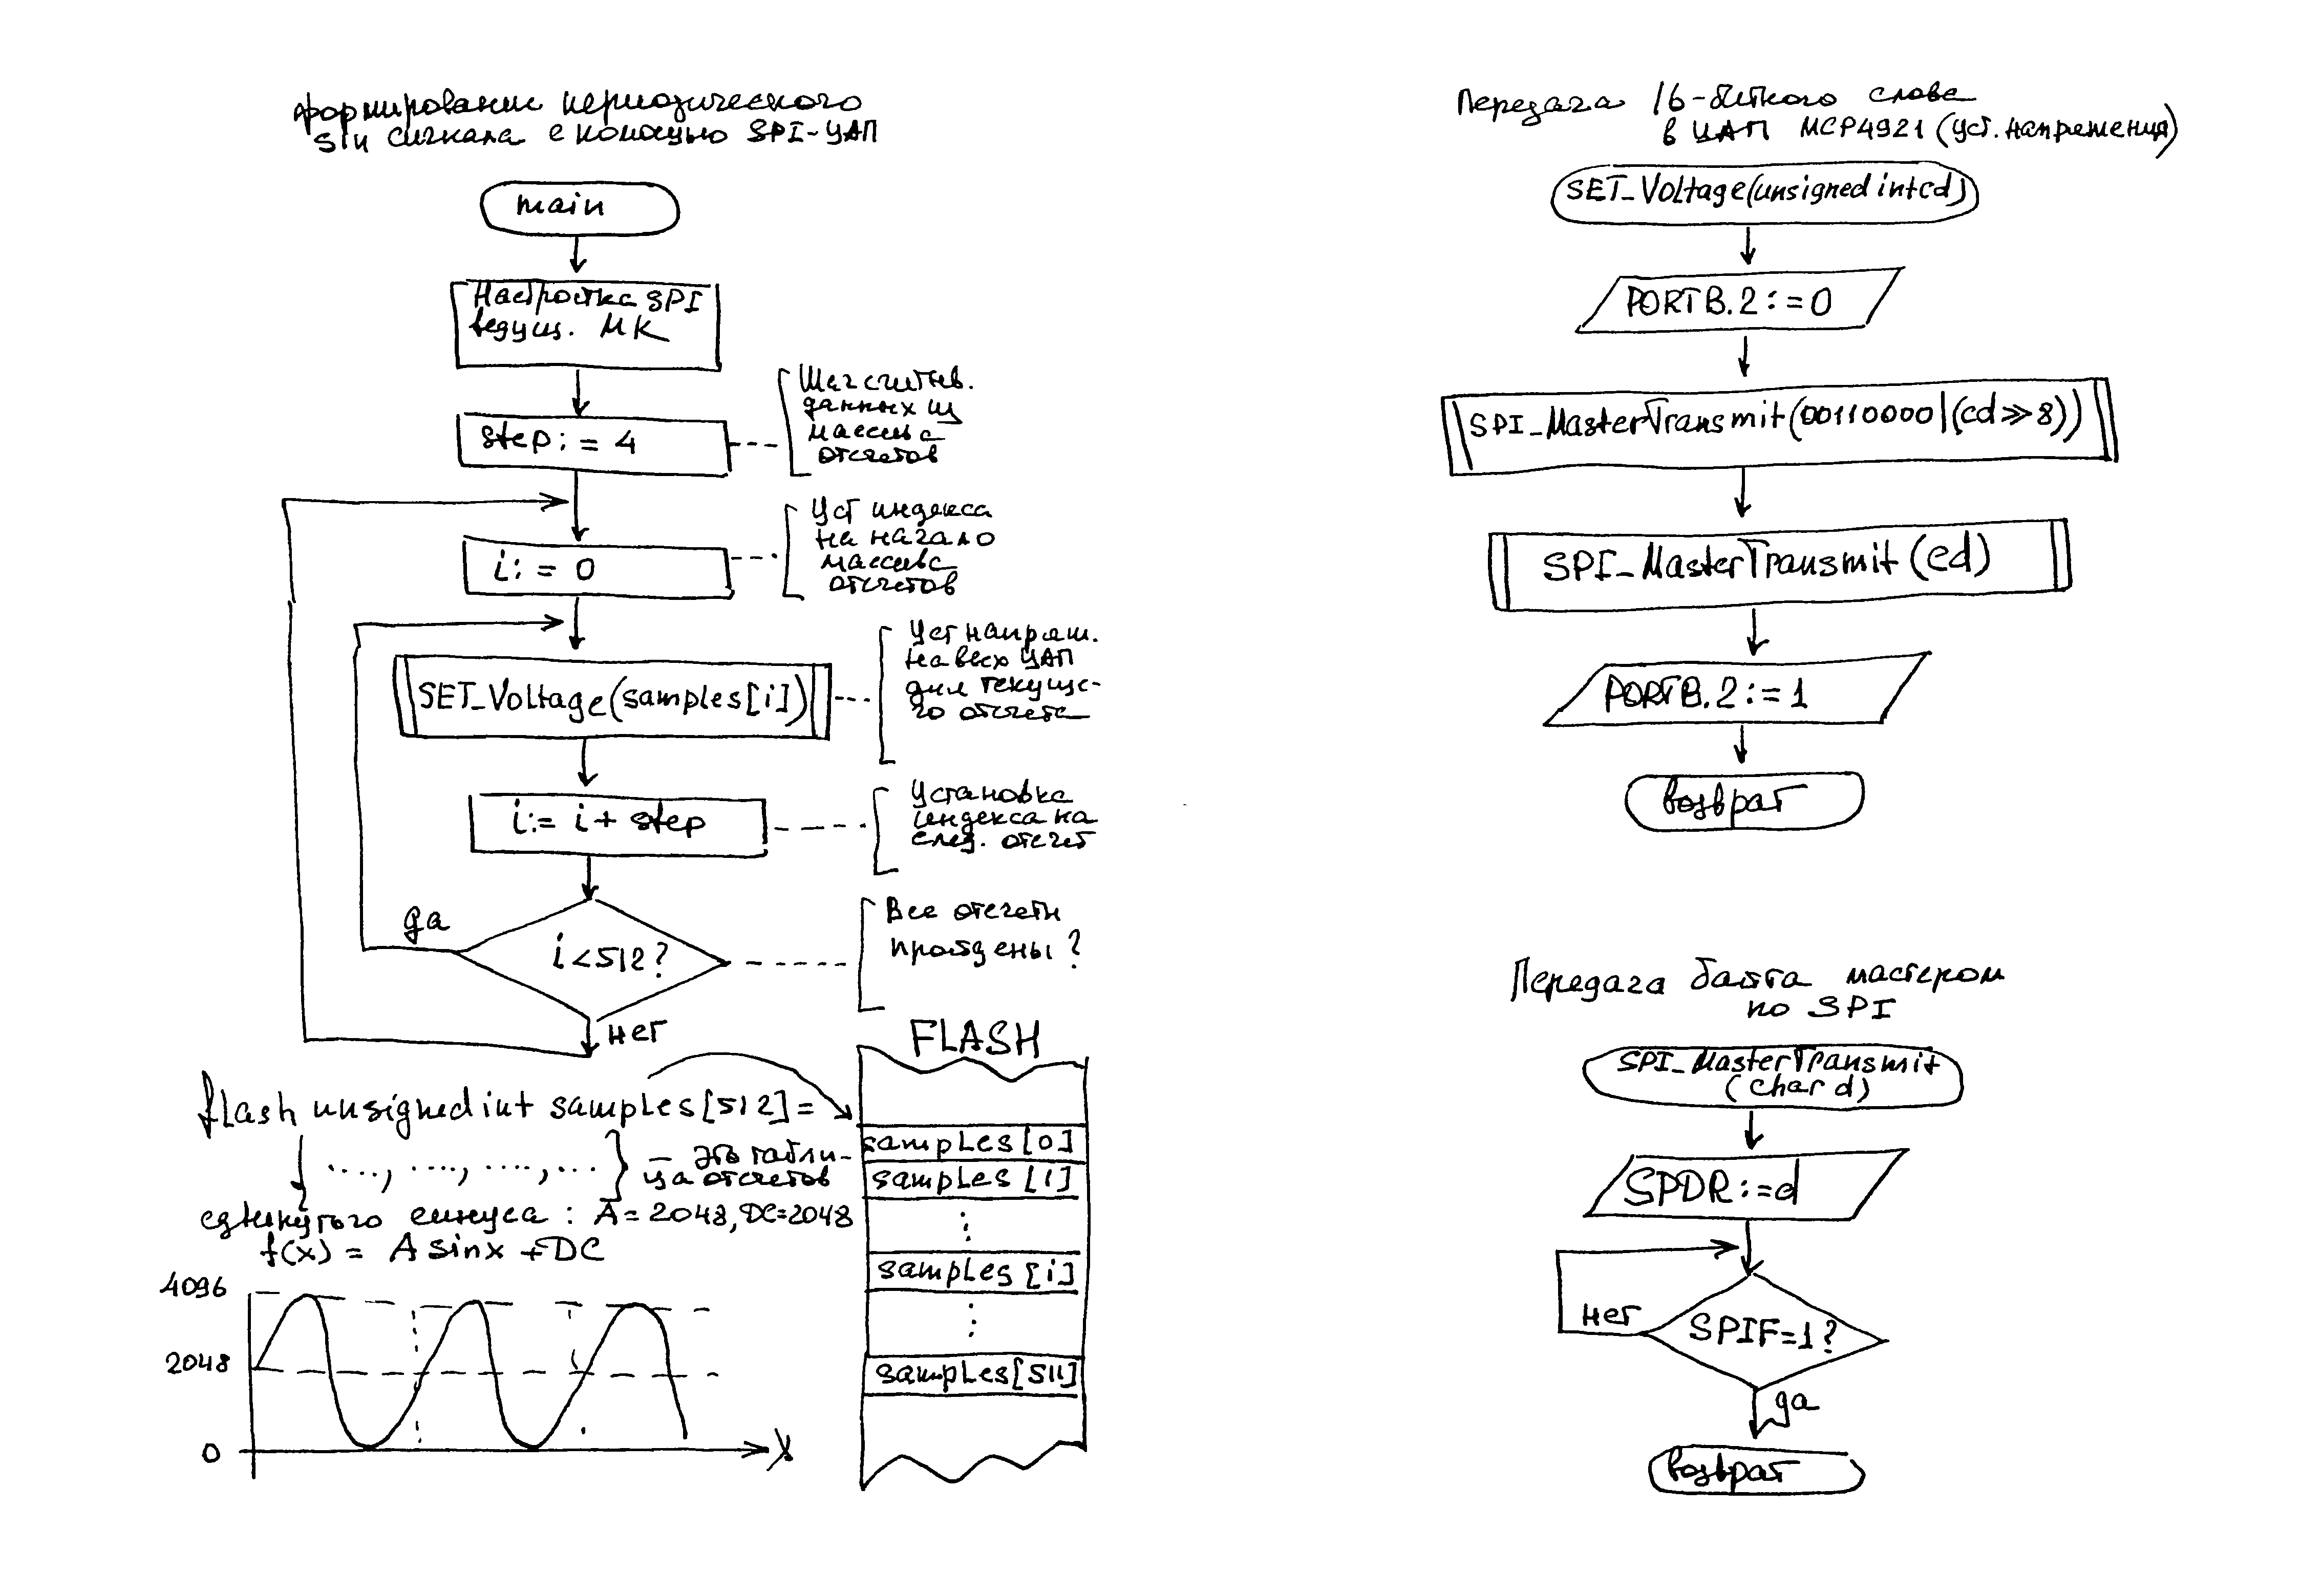 формирование периодического
sin сигнала с помощью SPI-ЦАП
main
Настройка SPI
ведущ. МК
step := 4
Шаг считыв.
данных из
массива
отсчетов
i := 0
Уст индекса
на начало
массива
отсчетов
SET_Voltage(samples[i])
Уст напряж.
на вых ЦАП
для текуще-
го отсчета
i := i + step
Установка
индекса на
след. отсчет
да
i < 512?
нет
Все отсчеты
пройдены?
flash unsigned int samples[512] =
{ ...., ...., ...., ... } — это табли-
ца отсчетов
сдвинутого синуса : A = 2048, DC=2048
f(x) = A sinx + DC
4096
2048
0
X
FLASH
samples[0]
samples[1]
⋮
samples[i]
⋮
samples[511]
Передача 16-битного слова
в ЦАП MCP4921 (уст. напряжения)
SET_Voltage(unsigned int cd)
PORTB.2 := 0
SPI_MasterTransmit(00110000|(cd>>8))
SPI_MasterTransmit(cd)
PORTB.2 := 1
возврат
Передача байта мастером
по SPI
SPI_MasterTransmit
(char d)
SPDR := d
нет
SPIF=1?
да
возврат